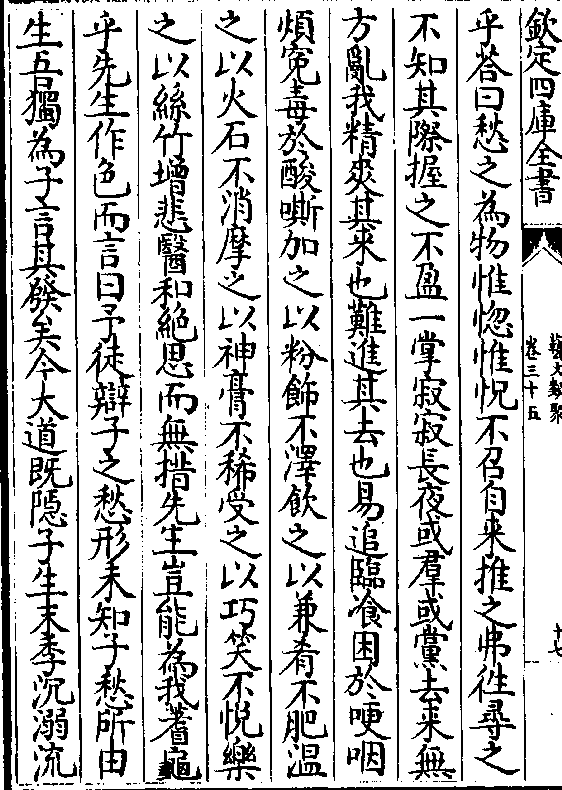 欽定四庫全書
藝文類聚
卷三十五
十七
乎荅曰愁之為物惟惚惟怳不召自来推之弗往尋之
不知其際握之不盈一掌寂寂長夜或羣或黨去来無
方亂我精爽其来也難進其去也易追臨飡困於哽咽
煩寃毒於酸嘶加之以粉飾不澤飲之以兼肴不肥温
之以火石不消摩之以神膏不稀受之以巧笑不悦樂
之以絲竹增悲醫和絶思而無措先生豈能為我蓍龜
乎先生作色而言曰予徒辯子之愁形未知子愁所由
生吾獨為子言其發矣今大道既隠子生末季沉溺流